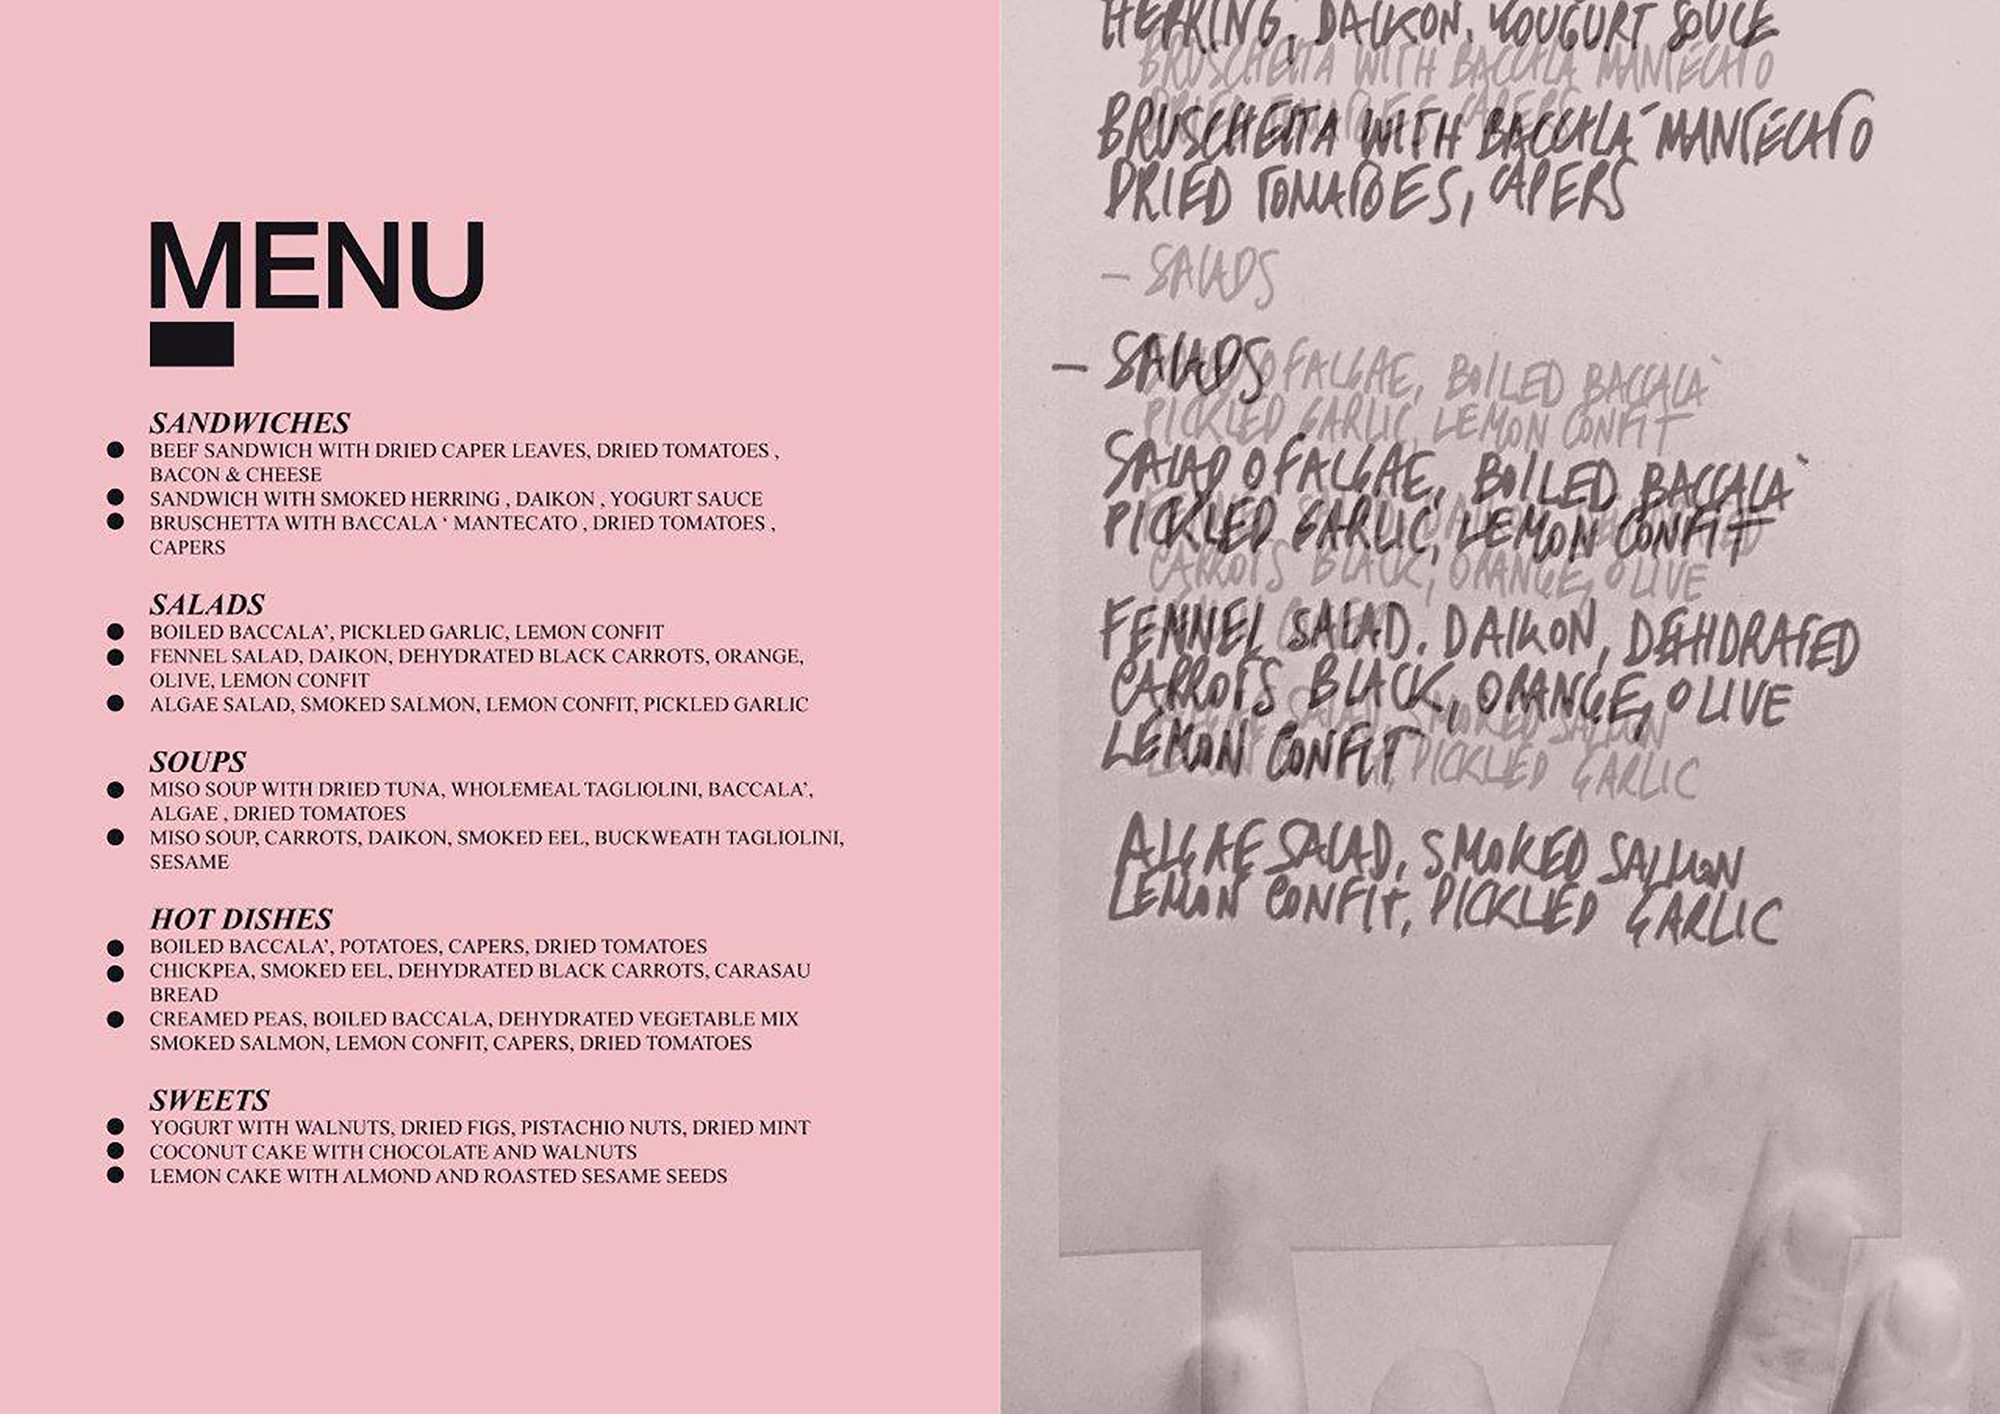 MENU
SANDWICHES
BEEF SANDWICH WITH DRIED CAPER LEAVES, DRIED TOMATOES ,
BACON & CHEESE
SANDWICH WITH SMOKED HERRING , DAIKON , YOGURT SAUCE
BRUSCHETTA WITH BACCALA ‘ MANTECATO , DRIED TOMATOES ,
CAPERS
SALADS
BOILED BACCALA’, PICKLED GARLIC, LEMON CONFIT
FENNEL SALAD, DAIKON, DEHYDRATED BLACK CARROTS, ORANGE,
OLIVE, LEMON CONFIT
ALGAE SALAD, SMOKED SALMON, LEMON CONFIT, PICKLED GARLIC
SOUPS
MISO SOUP WITH DRIED TUNA, WHOLEMEAL TAGLIOLINI, BACCALA’,
ALGAE , DRIED TOMATOES
MISO SOUP, CARROTS, DAIKON, SMOKED EEL, BUCKWEATH TAGLIOLINI,
SESAME
HOT DISHES
BOILED BACCALA’, POTATOES, CAPERS, DRIED TOMATOES
CHICKPEA, SMOKED EEL, DEHYDRATED BLACK CARROTS, CARASAU
BREAD
CREAMED PEAS, BOILED BACCALA, DEHYDRATED VEGETABLE MIX
SMOKED SALMON, LEMON CONFIT, CAPERS, DRIED TOMATOES
SWEETS
YOGURT WITH WALNUTS, DRIED FIGS, PISTACHIO NUTS, DRIED MINT
COCONUT CAKE WITH CHOCOLATE AND WALNUTS
LEMON CAKE WITH ALMOND AND ROASTED SESAME SEEDS
HERRING, DAIKON, YOUGURT SOUCE
BRUSCHETTA WITH BACCALA MANTECATO
BRUSCHETTA WITH BACCALA´ MANTECATO
DRIED TOMATOES, CAPERS
– SALADS
– SALADS
OF ALGAE, BOILED BACCALA`
PICKLED GARLIC, LEMON CONFIT
SALAD OF ALGAE, BOILED BACCALA`
PICKLED GARLIC, LEMON CONFIT
CARROTS BLACK, ORANGE, OLIVE
FENNEL SALAD. DAIKON, DEHIDRATED
CARROTS BLACK, ORANGE, OLIVE
LEMON CONFIT
PICKLED GARLIC
ALGAE SALAD, SMOKED SALMON
LEMON CONFIT, PICKLED GARLIC